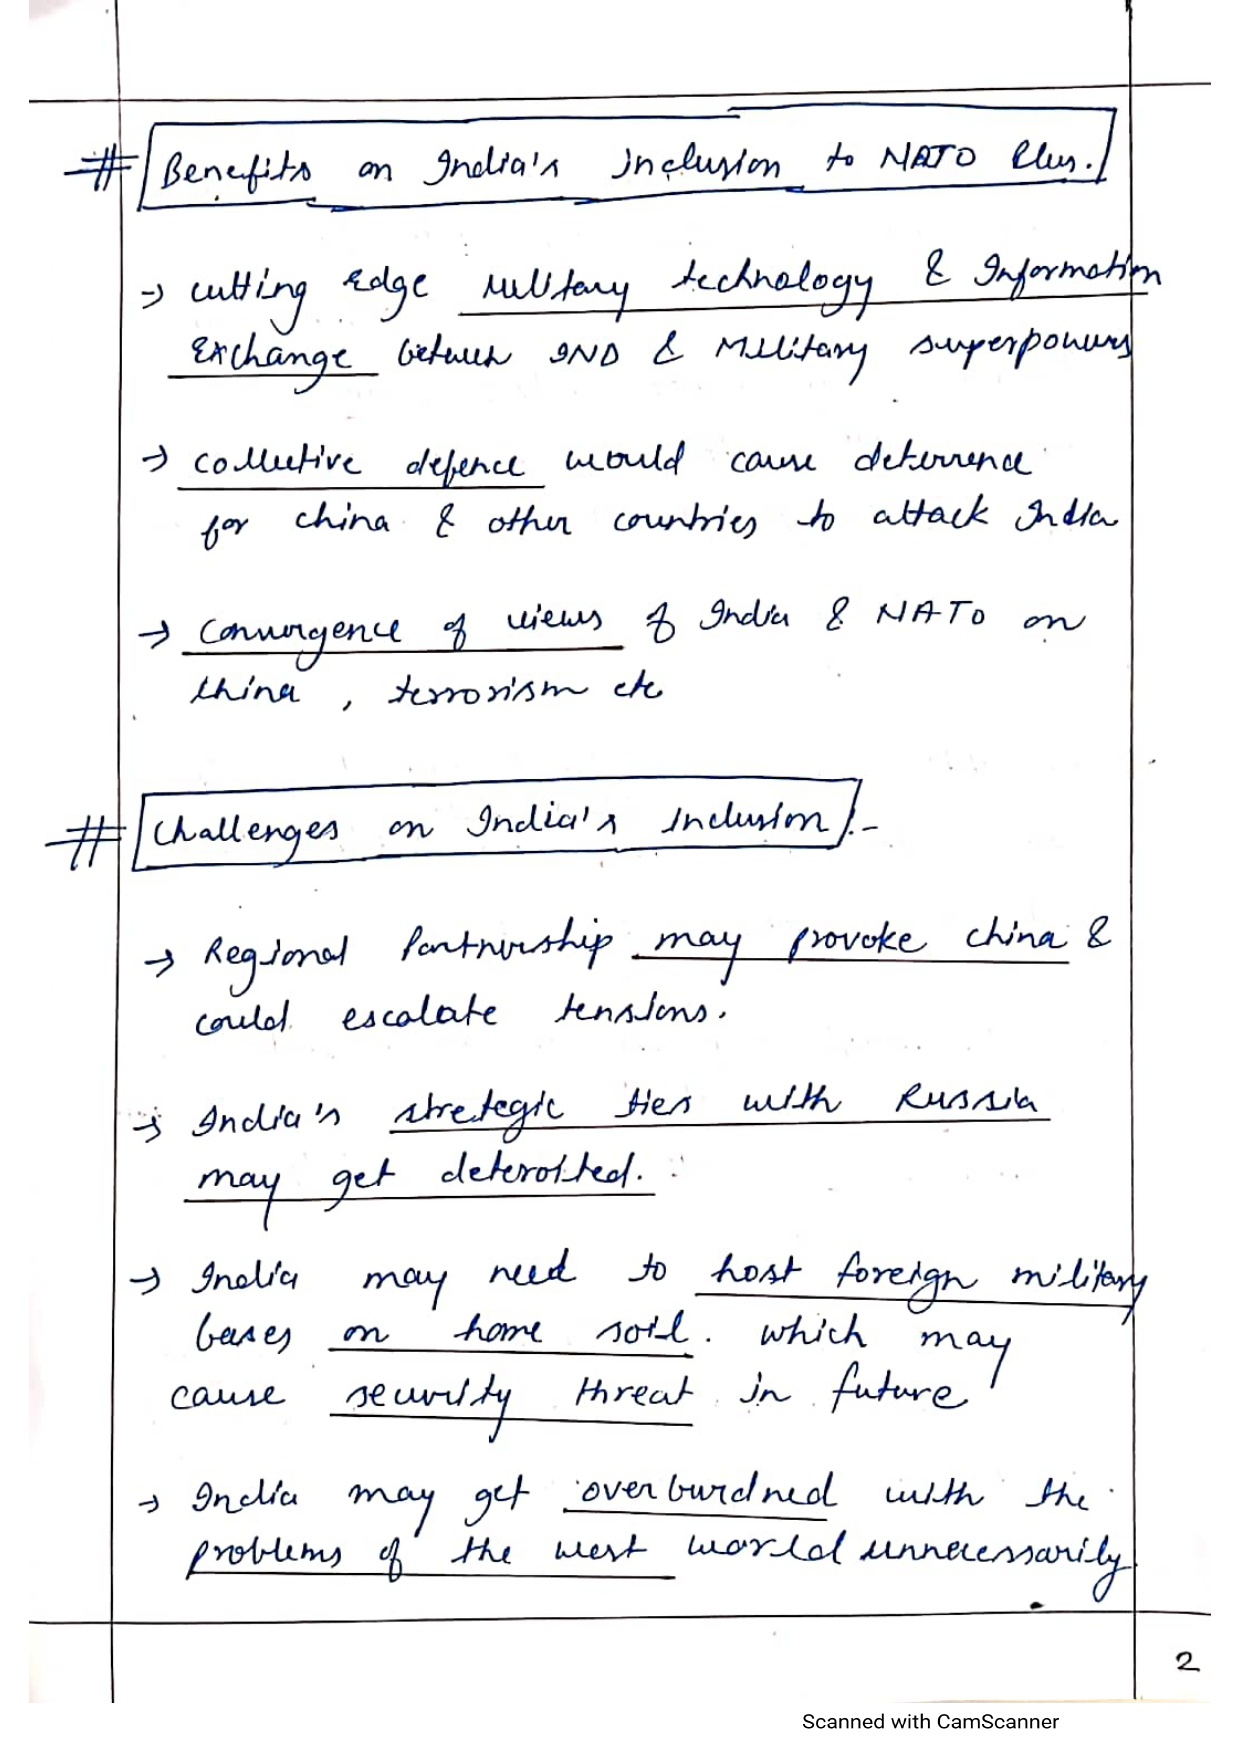 # Benefits on India's inclusion to NATO Plus.
→ cutting Edge military technology & Information
Exchange between IND & Military superpowers
→ collective defence would cause deterrence
for china & other countries to attack India
→ Convergence of views of India & NATO on
china , terrorism etc
# Challenges on India's Inclusion :-
→ Regional Partnership may provoke china &
could escalate tensions.
→ India's stretegic ties with Russia
may get deteroited.
→ India may need to host foreign military
bases on home soil. which may
cause security threat in future
→ India may get overburdned with the
problems of the west world unnecessarily
2
Scanned with CamScanner